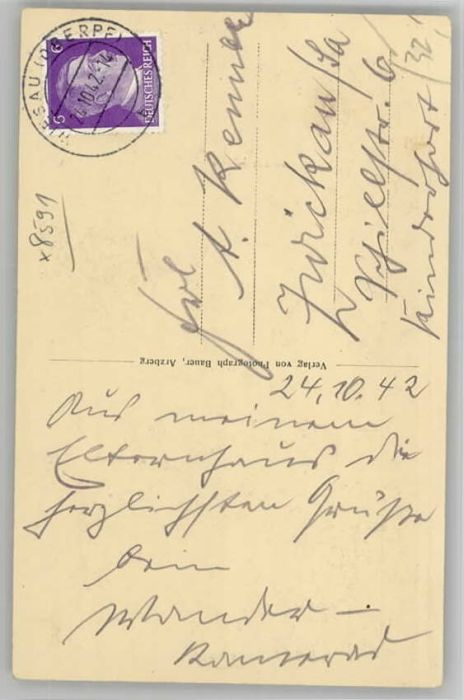 WIESAU (OBERPF)
24.10.42
6
6
DEUTSCHES REICH
x8591
Frl
A. Renner
Zwickau/Sa
Schillstr. 6
Kinderhort
Verlag von Photograph Bauer, Arzberg
24.10.42
Aus meinem
Elternhaus die
herzlichsten Grüße
Dein
Wander-
kamerad